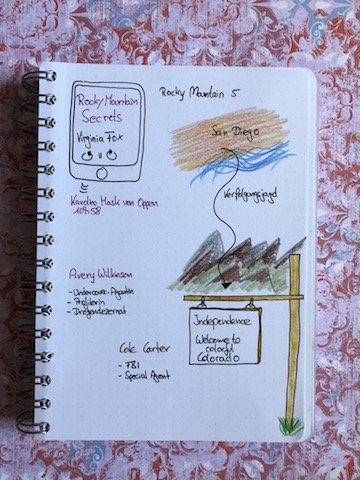 Rocky Mountain 5
Rocky Mountain
Secrets
Virginia Fox
Karoline Mask von Oppen
10h 58
San Diego
Verfolgungsjagd
Avery Wilkinson
- Undercover-Agentin
- Profilerin
- Drogendezernat
Independence
Welcome to
colorful
Colorado
Cole Carter
- FBI
- Special Agent